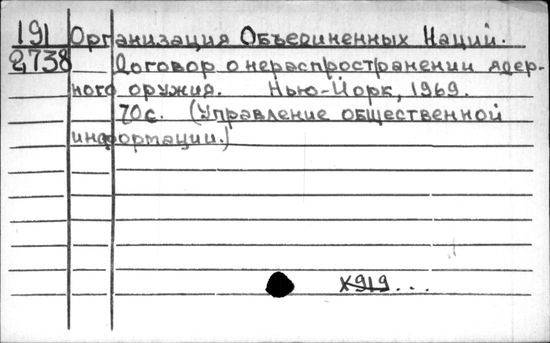 191 Организация Объединенных Наций.
2738 Договор о нераспространении ядер-
ного оружия. Нью-Йорк, 1969.
70с. (Управление общественной
информации.)
X919...